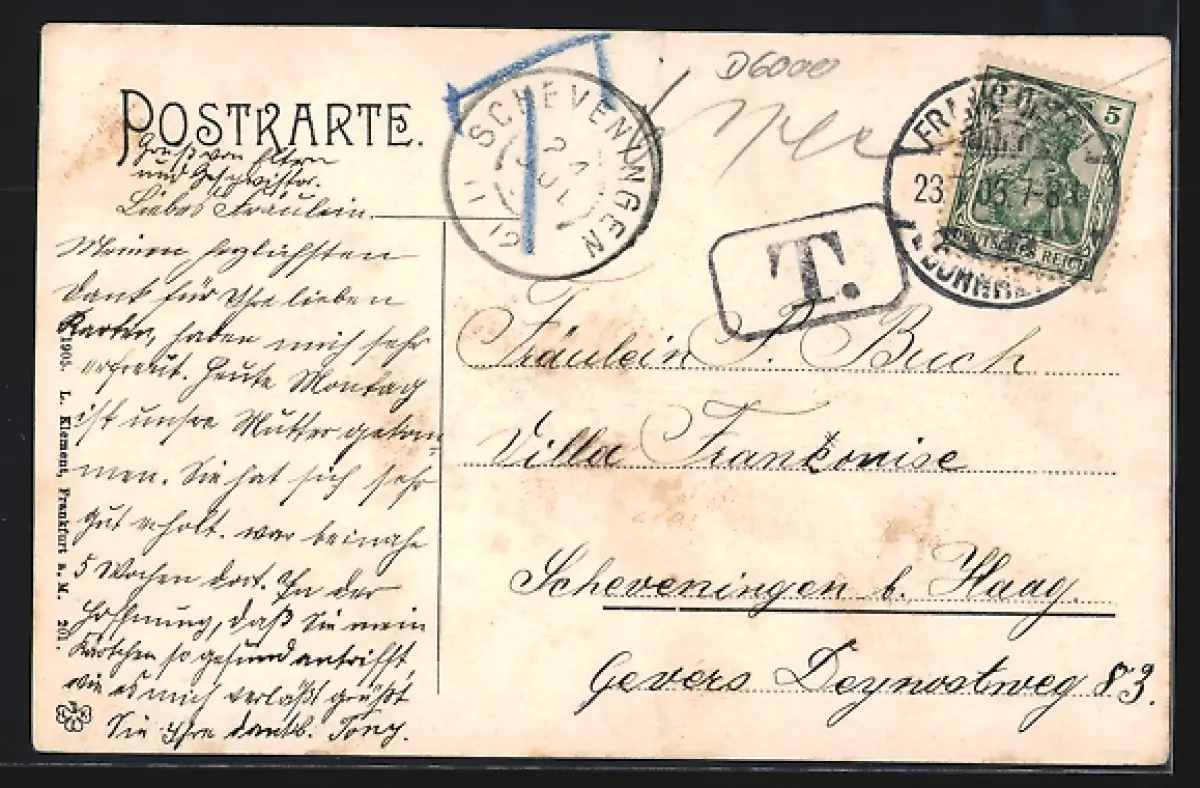 D6000
POSTKARTE.
Gruß von Eltern
und Geschwister.
Liebes Fräulein.
Meinen herzlichsten
Dank für Ihre lieben
Karten, haben mich sehr
erfreut. Heute Montag
ist unsre Mutter gekom-
men. Sie hat sich sehr
gut erholt. war beinahe
5 Wochen dort. In der
Hoffnung, daß Sie mein
Kärtchen so gesund antrifft,
wie es mich verläßt grüßt
Sie Ihre dankb. Tony.
1905. L. Klement, Frankfurt a. M. 201.
SCHEVENINGEN
24
JUL
T.
5
DEUTSCHES REICH
23 05 7-8
Fräulein P. Buch
Villa Frankonise
Scheveningen b. Haag.
Gevers Deynostweg 83.